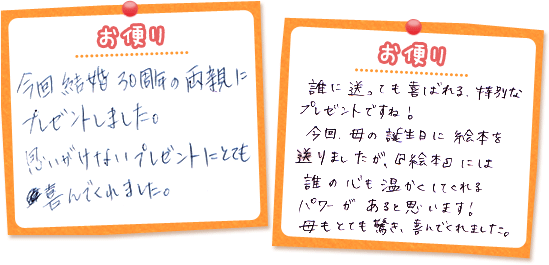 お便り
今回 結婚30周年の両親に
プレゼントしました。
思いがけないプレゼントにとても
喜んでくれました。
お便り
誰に送っても喜ばれる、特別な
プレゼントですね！
今回、母の誕生日に絵本を
送りましたが、『絵本』には
誰の心も温かくしてくれる
パワーがあると思います！
母もとても驚き、喜んでくれました。